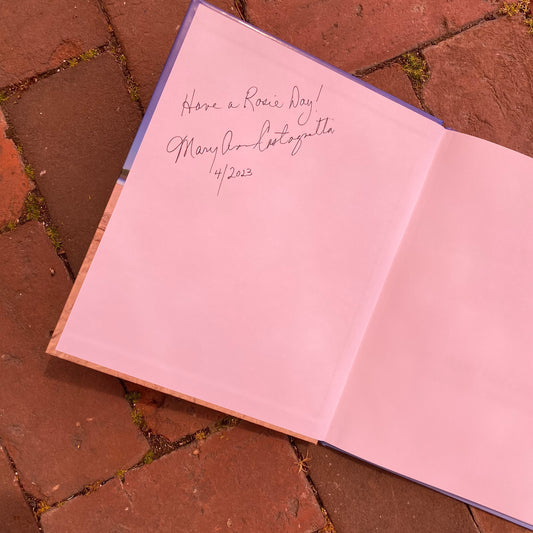 Have a Rosie Day!
Mary Ann Castagnetta
4/2023